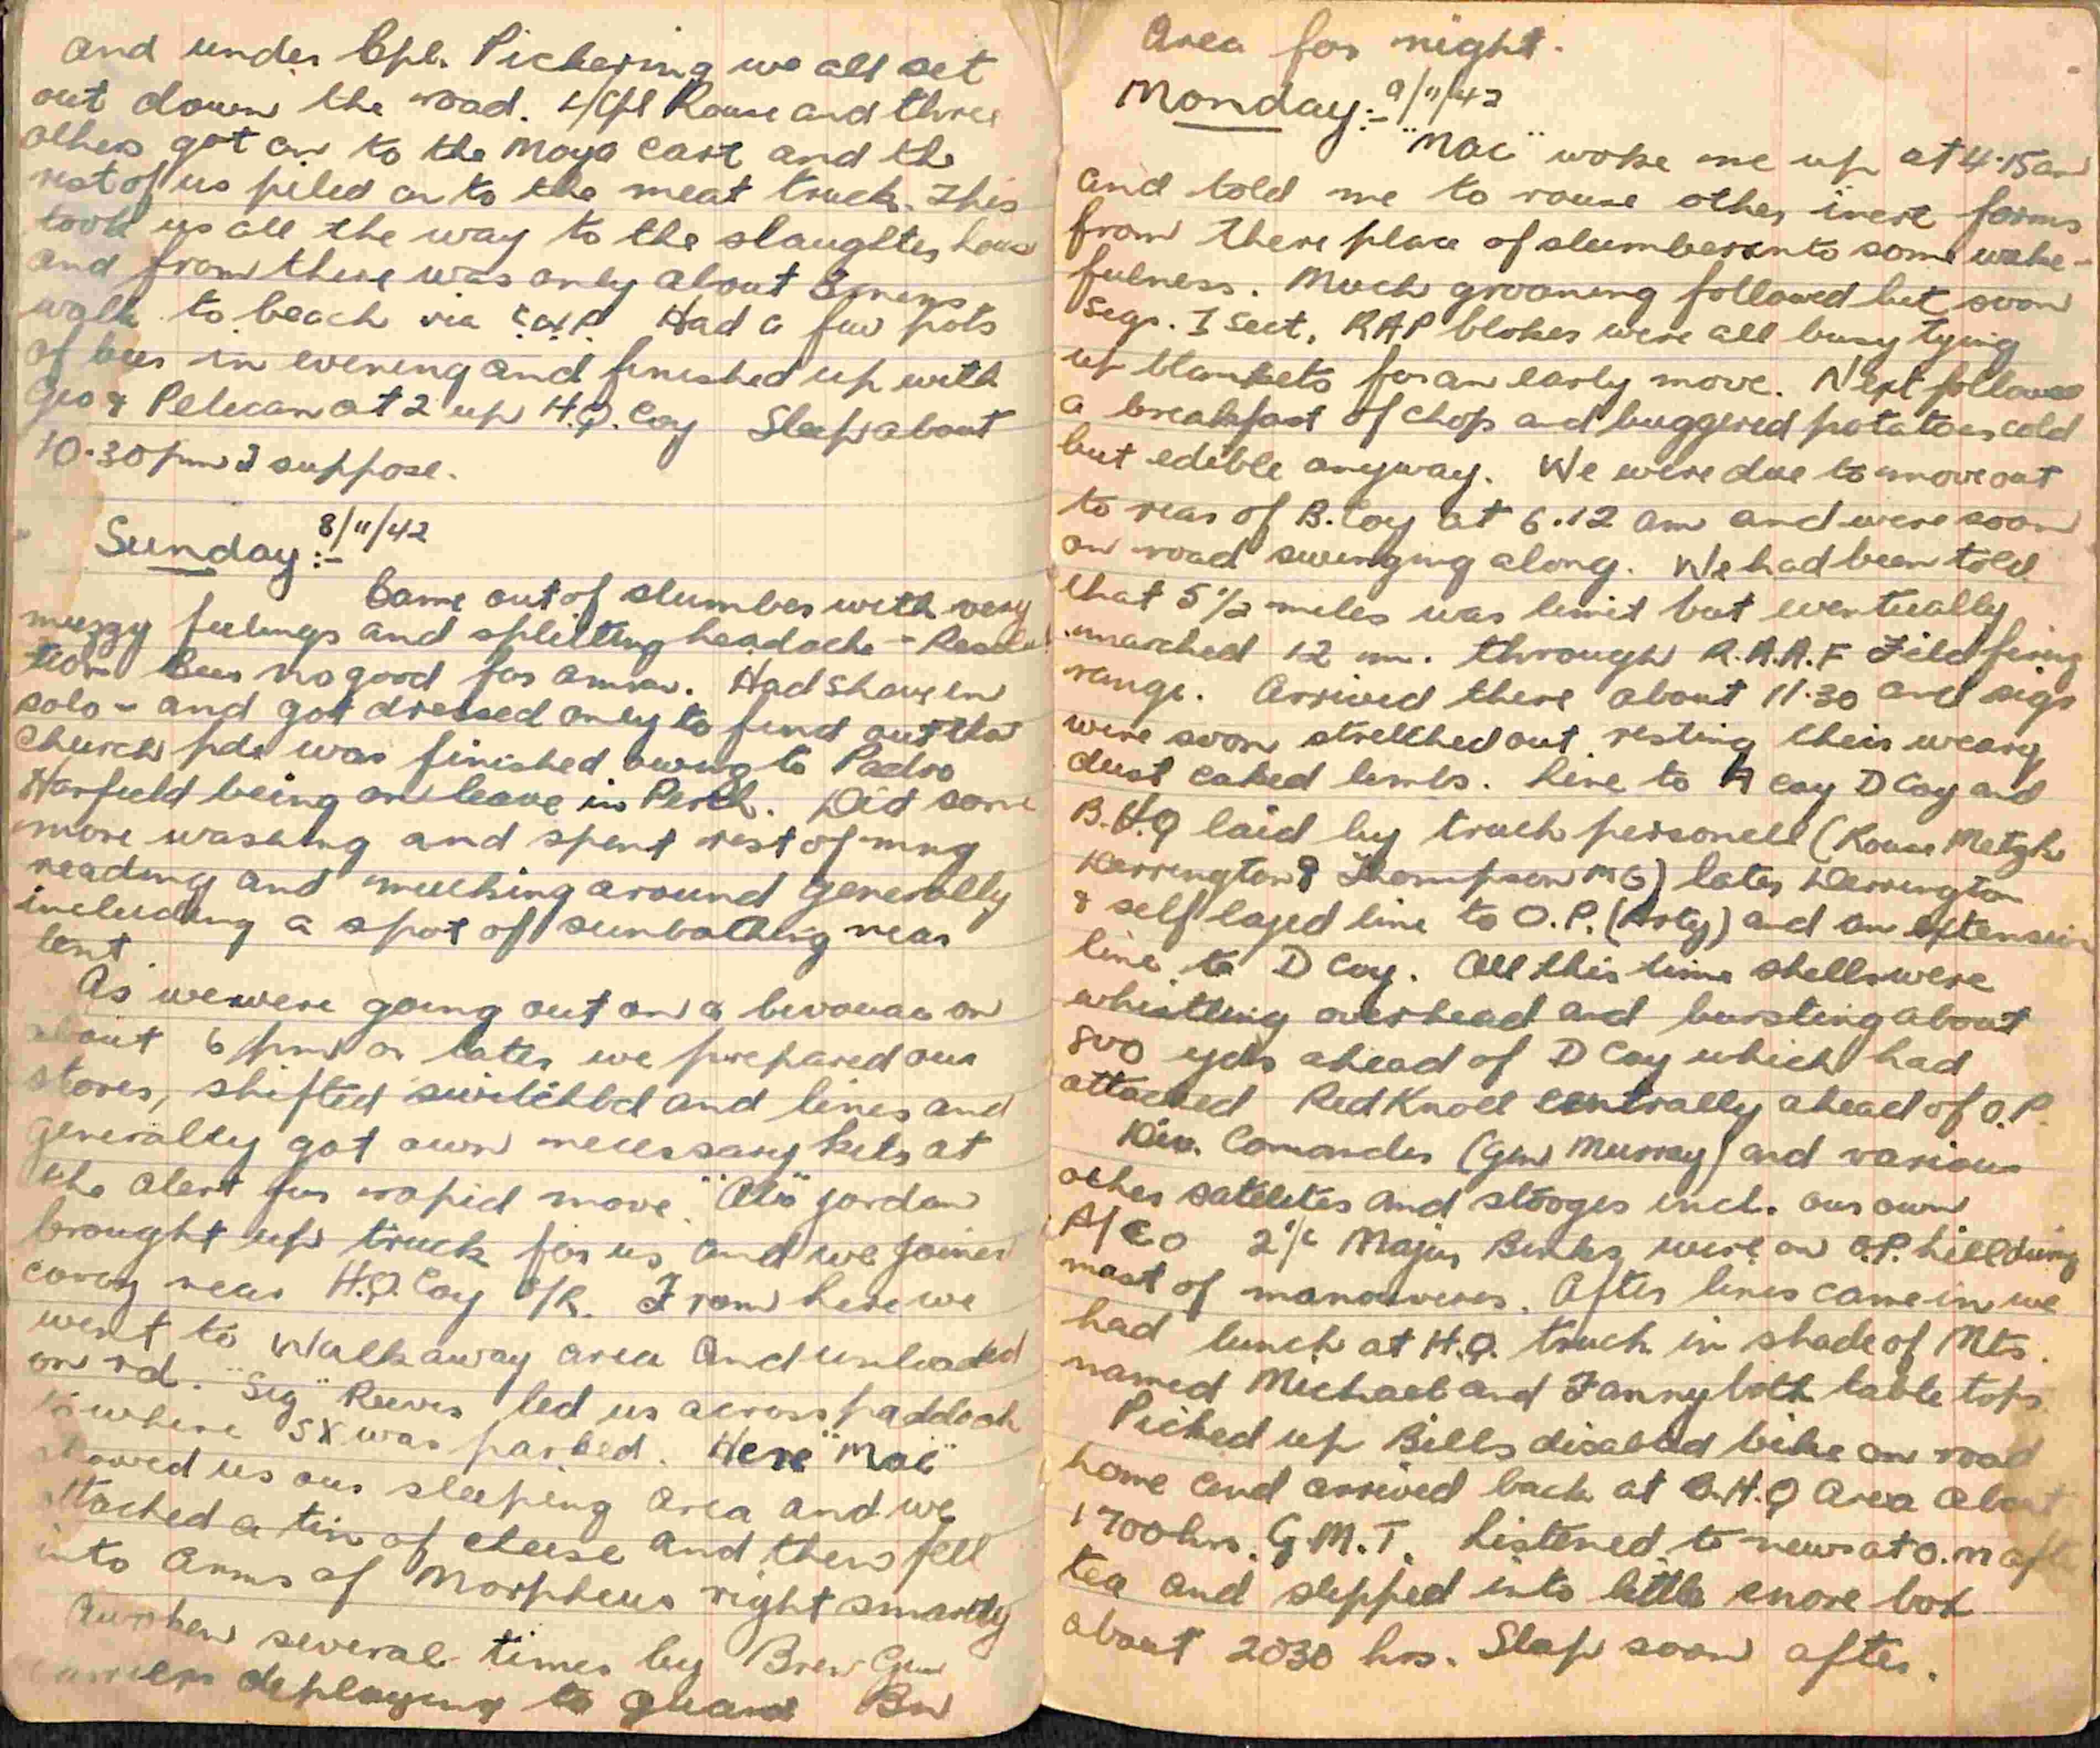 and under Cpl. Pickering we all set
out down the road. L/Cpl Rouse and three
others got on to the Moya cart and the
rest of us piled on to the meat truck. This
took us all the way to the slaughter house
and from there was only about 3 mins
walk to beach via Had a few pots
of beer in evening and finished up with
Geo & Pelican at 2 up H.Q. Coy Sleep about
10.30 pm I suppose.
Sunday:- 8/11/42
Came out of slumber with very
muzzy feelings and splitting headache - Resolu
tion Beer no good for Had shave in
solo - and got dressed only to find out that
Church pde was finished owing to Padro
Harfield being on leave in Perth. Did some
more washing and spent rest of mng
reading and mucking around generally
including a spot of sunbathing near
tent.
As we were going out on a bivouac on
about 6 pm or later we prepared our
stores, shifted switchbd and lines and
generally got own necessary kits at
the alert for rapid move. Jordan
brought up truck for us and we joined
convoy near H.Q. Coy O/R. From here we
went to Walkaway area and unloaded
on rd. "Sig" Reeves led us across paddock
to where SX was parked. Here "Mac"
showed us our sleeping area and we
attached a tin of cheese and then fell
into Arms of Morpheus right smartly
Awoken several times by Bren Gun
carriers deploying to guard Bn
Area for night.
Monday:- 9/11/42
"Mac" woke me up at 4.15am
and told me to rouse other inert forms
from there place of slumber into some wake-
fulness. Much groaning followed but soon
Sigs. I Sect, RAP blokes were all busy tying
up blankets for an early move. Next followed
a breakfast of chop and buggered potatoes cold
but edible anyway. We were due to move out
to rear of B. Coy at 6.12 am and were soon
on road swinging along. We had been told
that 5 1/2 miles was limit but eventually
marched 12 m. through R.A.A.F Field firing
range. Arrived there about 11.30 and sigs
were soon stretched out resting their weary
dust caked limbs. Line to A Coy D Coy and
B.H.Q laid by truck personell (Rouse Metzke
Derrington & Thompson MG) later Derrington
& self layed line to O.P. (Arty) and an extension
line to D Coy. All this time shells were
whistling overhead and bursting about
800 yds ahead of D Coy which had
attacked Red Knoll centrally ahead of O.P.
Div. Comander (Gen Murray) and various
other satelites and stooges incl. our own
A/CO 2i/c Major Binks were on O.P. hill during
most of manouvres. After lines came in we
had lunch at H.Q. truck in shade of Mts.
named Michael and Fanny both table tops.
Picked up Bills disabled bike on road
home and arrived back at B.H.Q Area about
1700 hrs. G.M.T. Listened to news at O.M after
tea and slipped into little snore box
about 2030 hrs. Sleep soon after.